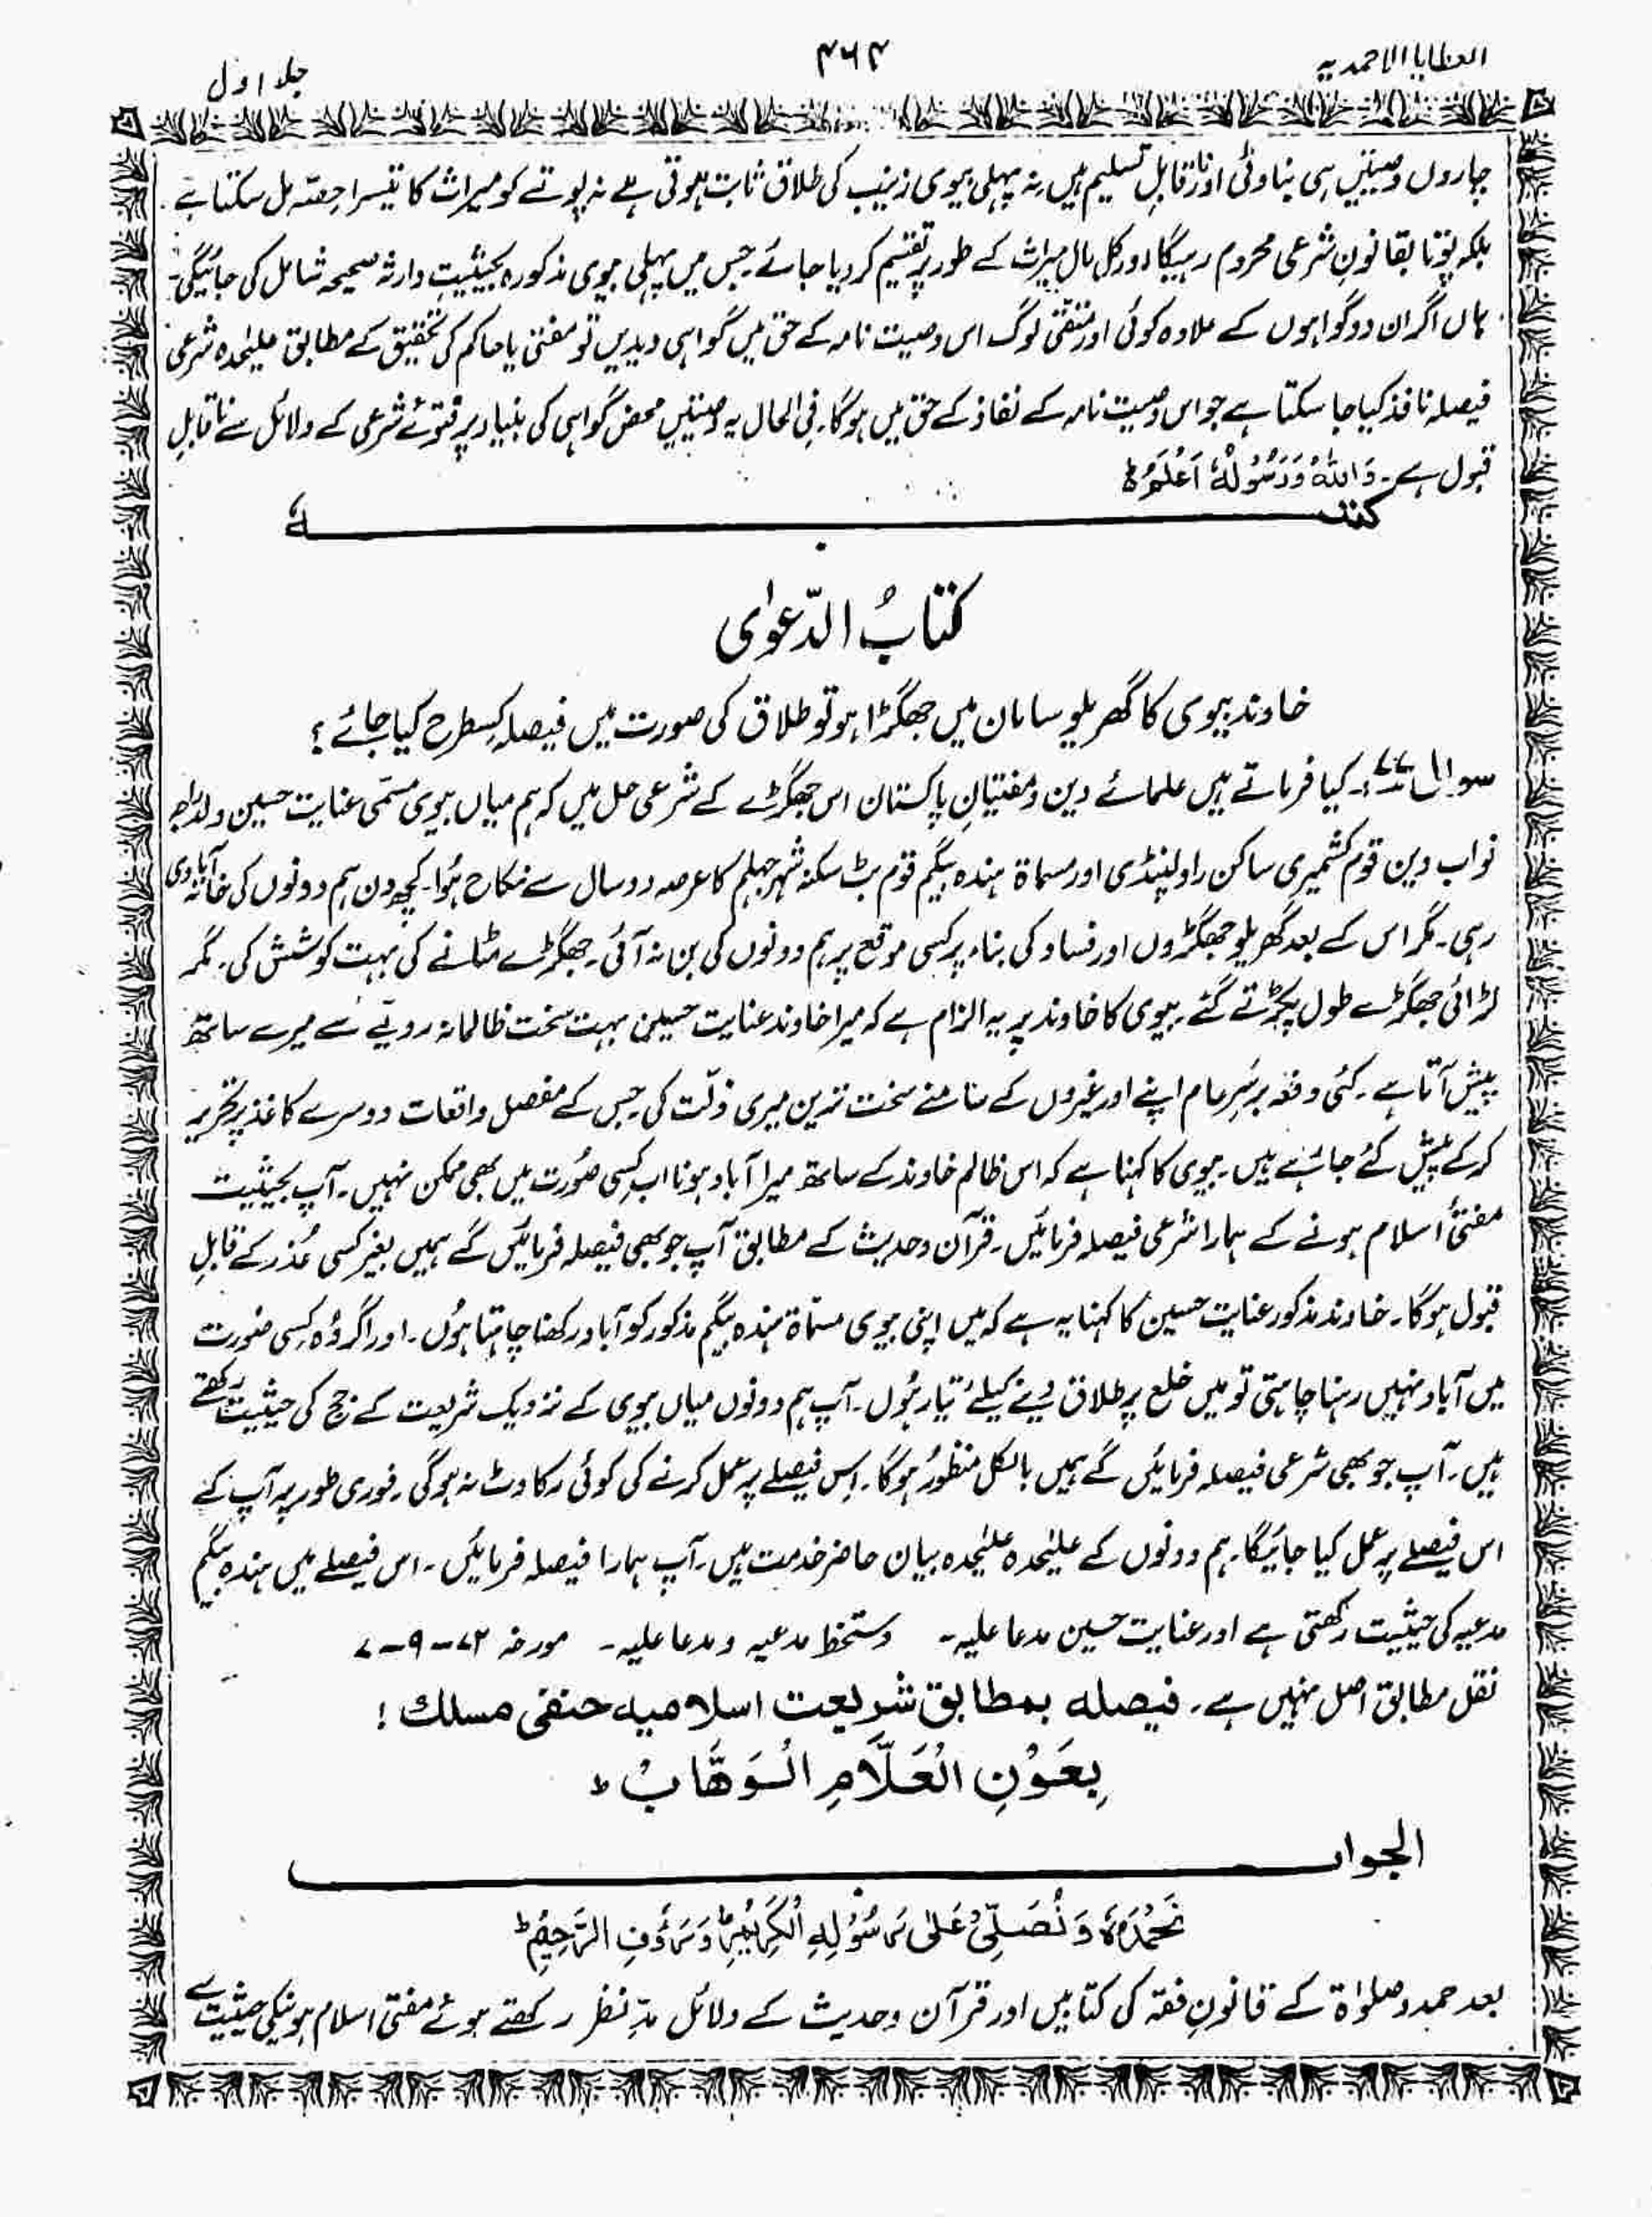 العطایا الاحمدیہ
۴۶۴
جلد اول
چاروں وصیتیں ہی بناوٹی اور ناقابلِ تسلیم ہیں نہ پہلی بیوی زینب کی طلاق ثابت ہوتی ہے نہ پوتے کو میراث کا تیسرا حصّہ مل سکتا ہے ۔
بلکہ پوتا بقانونِ شرعی محروم رہیگا اور کل مال میراث کے طور پر تقسیم کر دیا جائے جس میں پہلی بیوی مذکورہ بحیثیت وارثہ صحیحہ شامل کی جائیگی ۔
ہاں اگر ان دو گواہوں کے علاوہ کوئی اور متقی لوگ اس وصیت نامہ کے حق میں گواہی دیدیں تو مفتی یا حاکم کی تحقیق کے مطابق علیٰحدہ شرعی
فیصلہ نافذ کیا جا سکتا ہے جو اس وصیت نامہ کے نفاذ کے حق میں ہوگا۔ فی الحال یہ وصیتیں محض گواہی کی بنیاد پر فتوئے شرعی کے دلائل سے ناقابلِ
قبول ہے ۔ وَاللّٰہُ وَرَسُوْلُہٗ اَعْلَمُ ط
کتبــــــــــہٗ
کتابُ الدّعوٰی
خاوند بیوی کا گھریلو سامان میں جھگڑا ہو تو طلاق کی صورت میں فیصلہ کسطرح کیا جائے ؟
سوال ۷۷ :۔ کیا فرماتے ہیں علمائے دین و مفتیانِ پاکستان اس جھگڑے کے شرعی حل میں کہ ہم میاں بیوی مسمّی عنایت حسین ولد راجہ
نواب دین قوم کشمیری ساکن راولپنڈی اور مسماۃ ہندہ بیگم قوم بٹ سکنہ شہر جہلم کا عرصہ دو سال سے نکاح ہُوا۔ کچھ دن ہم دونوں کی خانہ آبادی
رہی۔ مگر اس کے بعد گھریلو جھگڑوں اور فساد کی بناء پر کسی موقع پر ہم دونوں کی بن نہ آئی۔ جھگڑے مٹانے کی بہت کوشش کی۔ مگر
لڑائی جھگڑے طول پکڑتے گئے۔ بیوی کا خاوند پر یہ الزام ہے کہ میرا خاوند عنایت حسین بہت سخت ظالمانہ رویّے سے میرے ساتھ
پیش آتا ہے ۔ کئی دفعہ برسَرِ عام اپنے اور غیروں کے سامنے سخت ترین میری ذلّت کی جس کے مفصل واقعات دوسرے کاغذ پر تحریر
کر کے پیش کئے جا رہے ہیں۔ بیوی کا کہنا ہے کہ اس ظالم خاوند کے ساتھ میرا آباد ہونا اب کسی صُورت میں بھی ممکن نہیں۔ آپ بحیثیت
مفتئ اسلام ہونے کے ہمارا شرعی فیصلہ فرمائیں۔ قرآن و حدیث کے مطابق آپ جو بھی فیصلہ فرمائیں گے ہمیں بغیر کسی عُذر کے قابلِ
قبول ہوگا۔ خاوند مذکور عنایت حسین کا کہنا یہ ہے کہ میں اپنی بیوی مسمّاۃ ہندہ بیگم مذکور کو آباد رکھنا چاہتا ہُوں۔ اور اگر وُہ کسی صُورت
میں آباد نہیں رہنا چاہتی تو میں خلع پر طلاق دینے کیلئے تیار ہُوں۔ آپ ہم دونوں میاں بیوی کے نزدیک شریعت کے جج کی حیثیت رکھتے
ہیں۔ آپ جو بھی شرعی فیصلہ فرمائیں گے ہمیں بالکل منظور ہوگا۔ اِس فیصلے پر عمل کرنے کی کوئی رکاوٹ نہ ہوگی۔ فوری طور پر آپ کے
اس فیصلے پر عمل کیا جائیگا۔ ہم دونوں کے علیٰحدہ علیٰحدہ بیان حاضر خدمت ہیں۔ آپ ہمارا فیصلہ فرمائیں۔ اس فیصلے میں ہندہ بیگم
مدعیہ کی حیثیت رکھتی ہے اور عنایت حسین مدعا علیہ۔ دستخط مدعیہ و مدعا علیہ۔ مورخہ ۷۲-۹-۷
نقل مطابق اصل نہیں ہے۔ فیصلہ بمطابق شریعت اسلامیہ حنفی مسلک !
بِعَوْنِ الْعَلَّامِ الْوَهَّابْ ط
الجواب
نَحْمَدُہٗ وَنُصَلِّیْ عَلٰی رَسُوْلِہِ الْکَرِیْمِ وَرَءُوْفِ الرَّحِیْمِ ط
بعد حمد و صلوٰۃ کے قانونِ فقہ کی کتابیں اور قرآن و حدیث کے دلائل مدِّ نظر رکھتے ہوئے مفتئ اسلام ہونیکی حیثیت سے